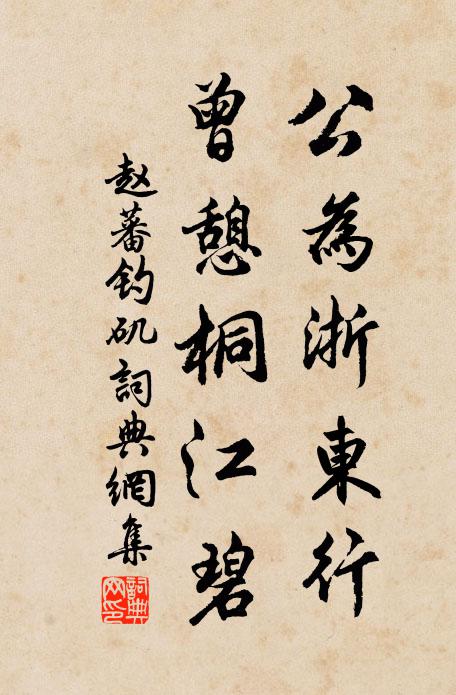 公為浙東行
曾憩桐江碧
赵蕃钓矶詞典網集
詞典網印